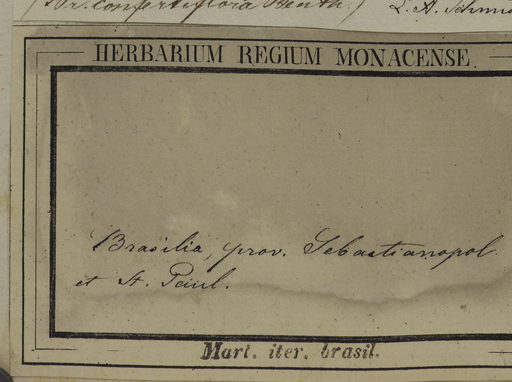 Br. confertiflora Benth.)
HERBARIUM REGIUM MONACENSE
Brasilia, prov. Sebastianopol
et St. Paul.
Mart. iter. brasil.